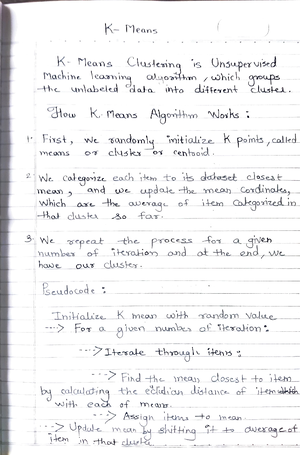 K- Means
K- Means Clustering is Unsupervised
Machine learning algorithm, which groups
the unlabeled data into different cluster.
How K Means Algorithm Works :
1. First, we randomly initialize K points, called
means or cluster or centroid.
2. We categorize each item to its dataset closest
mean, and we update the mean cordinates,
which are the average of item categorized in
that cluster so far.
3. We repeat the process for a given
number of iteration and at the end, we
have our cluster.
Pseudocode :
Initialize K mean with random value
---> For a given number of iteration :
---> Iterate through items :
---> Find the mean closest to item
by calculating the eclidian distance of item
with each of mean.
---> Assign items to mean
---> Update mean by shifting it to average of
item in that cluster